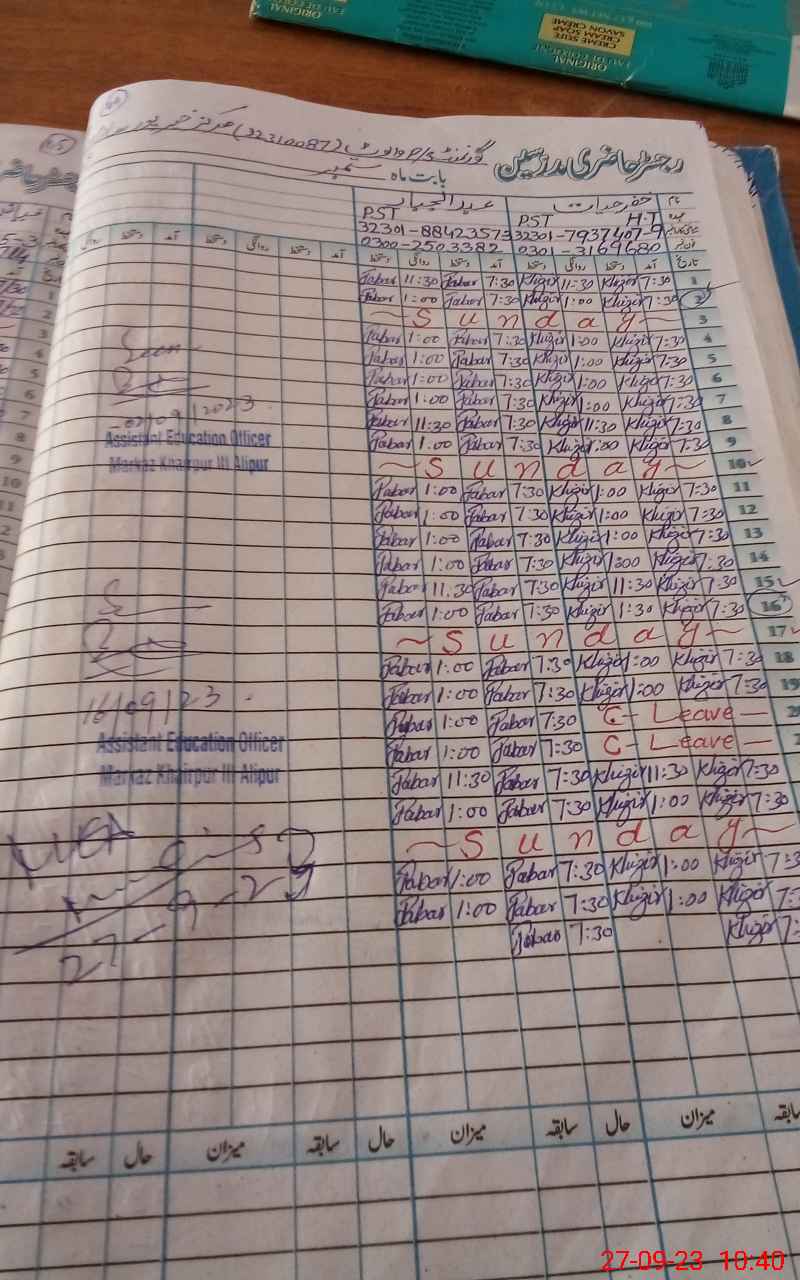 ORIGINAL
EAU DE COLOGNE
CREME SEIFE
CREAM SOAP
SAVON CRÈME
ORIGINAL
رجسٹر حاضری مدرسین
گورنمنٹ (32310087) مرکز خیر پور
بابت ماہ ستمبر
نام خضر حیات عبدالجبار
عہدہ H.T PST PST
32301-7937407-9 32301-8842357-3
0301-3169680 0300-2503382
تاریخ آمد دستخط روانگی دستخط آمد دستخط روانگی دستخط آمد دستخط روانگی دستخط آمد دستخط روانگی
Jabar 11:30 Jabar 7:30 Khizir 11:30 Khizir 7:30 1
Jabar 1:00 Jabar 7:30 Khizir 1:00 Khizir 7:30 2
~ S u n d a y ~ 3
Jabar 1:00 Jabar 7:30 Khizir 1:00 Khizir 7:30 4
Jabar 1:00 Jabar 7:30 Khizir 1:00 Khizir 7:30 5
Jabar 1:00 Jabar 7:30 Khizir 1:00 Khizir 7:30 6
Jabar 1:00 Jabar 7:30 Khizir 1:00 Khizir 7:30 7
Jabar 11:30 Jabar 7:30 Khizir 11:30 Khizir 7:30 8
Jabar 1:00 Jabar 7:30 Khizir 1:00 Khizir 7:30 9
~ S u n d a y ~ 10
Jabar 1:00 Jabar 7:30 Khizir 1:00 Khizir 7:30 11
Jabar 1:00 Jabar 7:30 Khizir 1:00 Khizir 7:30 12
Jabar 1:00 Jabar 7:30 Khizir 1:00 Khizir 7:30 13
Jabar 1:00 Jabar 7:30 Khizir 1:00 Khizir 7:30 14
Jabar 11:30 Jabar 7:30 Khizir 11:30 Khizir 7:30 15
Jabar 1:00 Jabar 7:30 Khizir 1:30 Khizir 7:30 16
~ S u n d a y ~ 17
Jabar 1:00 Jabar 7:30 Khizir 1:00 Khizir 7:30 18
Jabar 1:00 Jabar 7:30 Khizir 1:00 Khizir 7:30 19
Jabar 1:00 Jabar 7:30 C- Leave —
Jabar 1:00 Jabar 7:30 C- Leave —
Jabar 11:30 Jabar 7:30 Khizir 11:30 Khizir 7:30
Jabar 1:00 Jabar 7:30 Khizir 1:00 Khizir 7:30
~ S u n d a y ~
Jabar 1:00 Jabar 7:30 Khizir 1:00 Khizir 7:3
Jabar 1:00 Jabar 7:30 Khizir 1:00 Khizir 7:
Jabar 7:30 Khizir 7:
Seen
02/09/2023
Assistant Education Officer
Markaz Khairpur III Alipur
16/09/23
Assistant Education Officer
Markaz Khairpur III Alipur
27-9-23
سابقہ میزان حال سابقہ میزان حال سابقہ میزان حال سابقہ
27-09-23 10:40